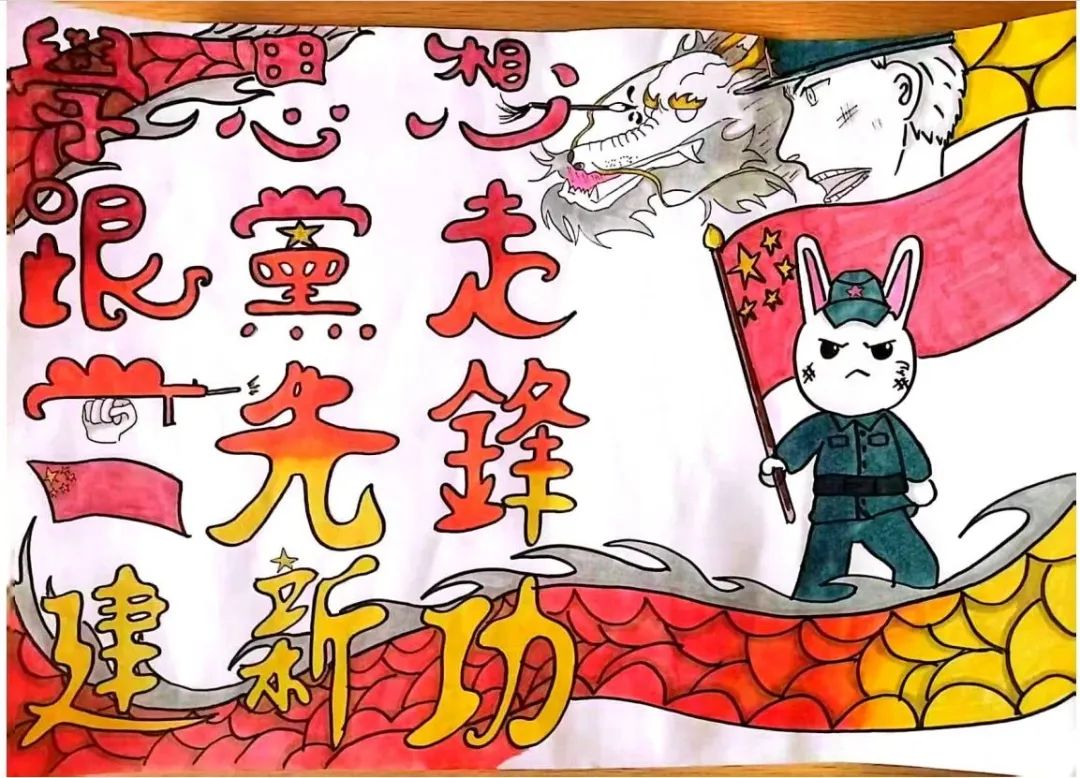 學思想
跟黨走
先鋒
建新功